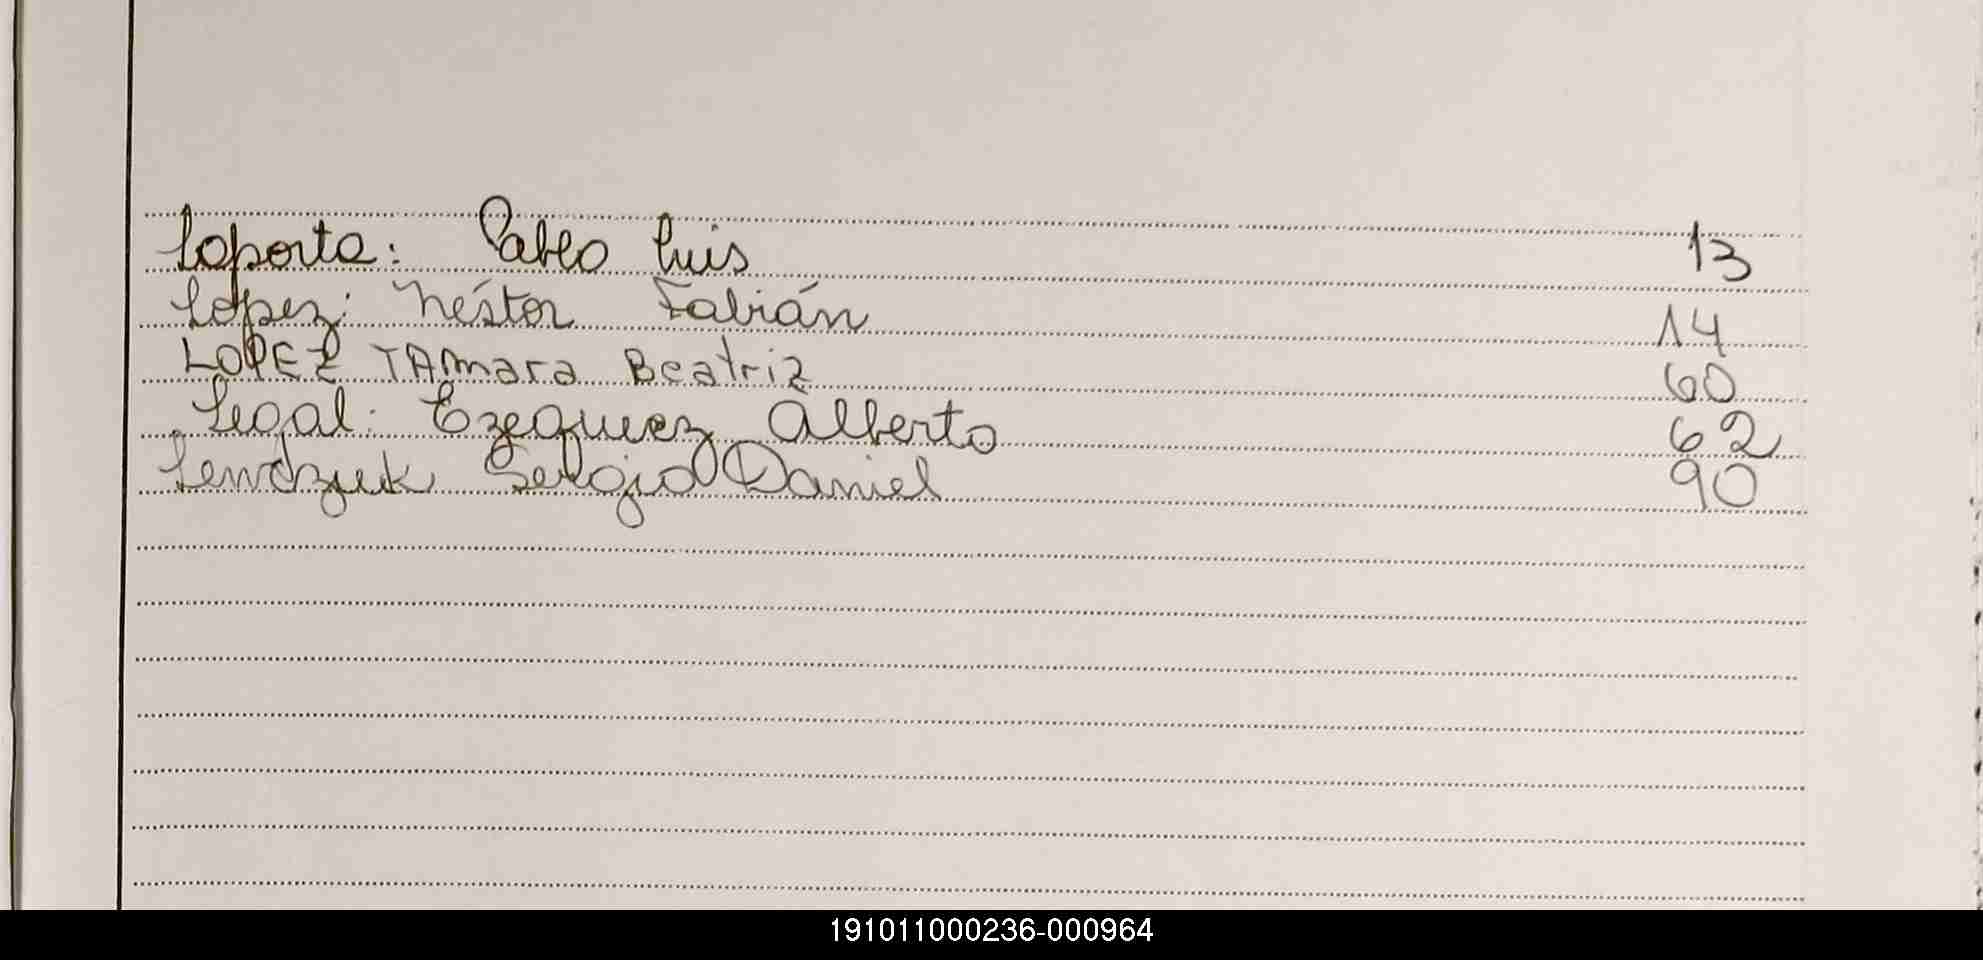 Laporta: Pablo Luis 13
López: Néstor Fabián 14
LOPEZ TAmara Beatriz 60
Legal: Ezequiez Alberto 62
Lendzuk Sergio Daniel 90
191011000236-000964